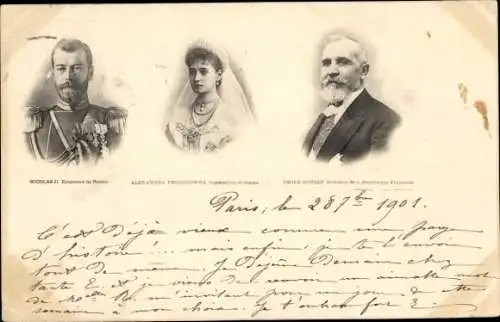 NICOLAS II Empereur de Russie
ALEXANDRA FEODOROWNA Impératrice de Russie
EMILE LOUBET Président de la République Française
Paris, le 28 7bre 1901.
C'est Déjà vieux comme une page
d'histoire ... mais enfin, je te l'envoie
tout de même. Je Déjeune Demain chez
tante E. et je viens de recevoir un aimable mot
de Mme R. m'invitant pour un jour de
semaine à mon choix. Je t'embrasse fort E.